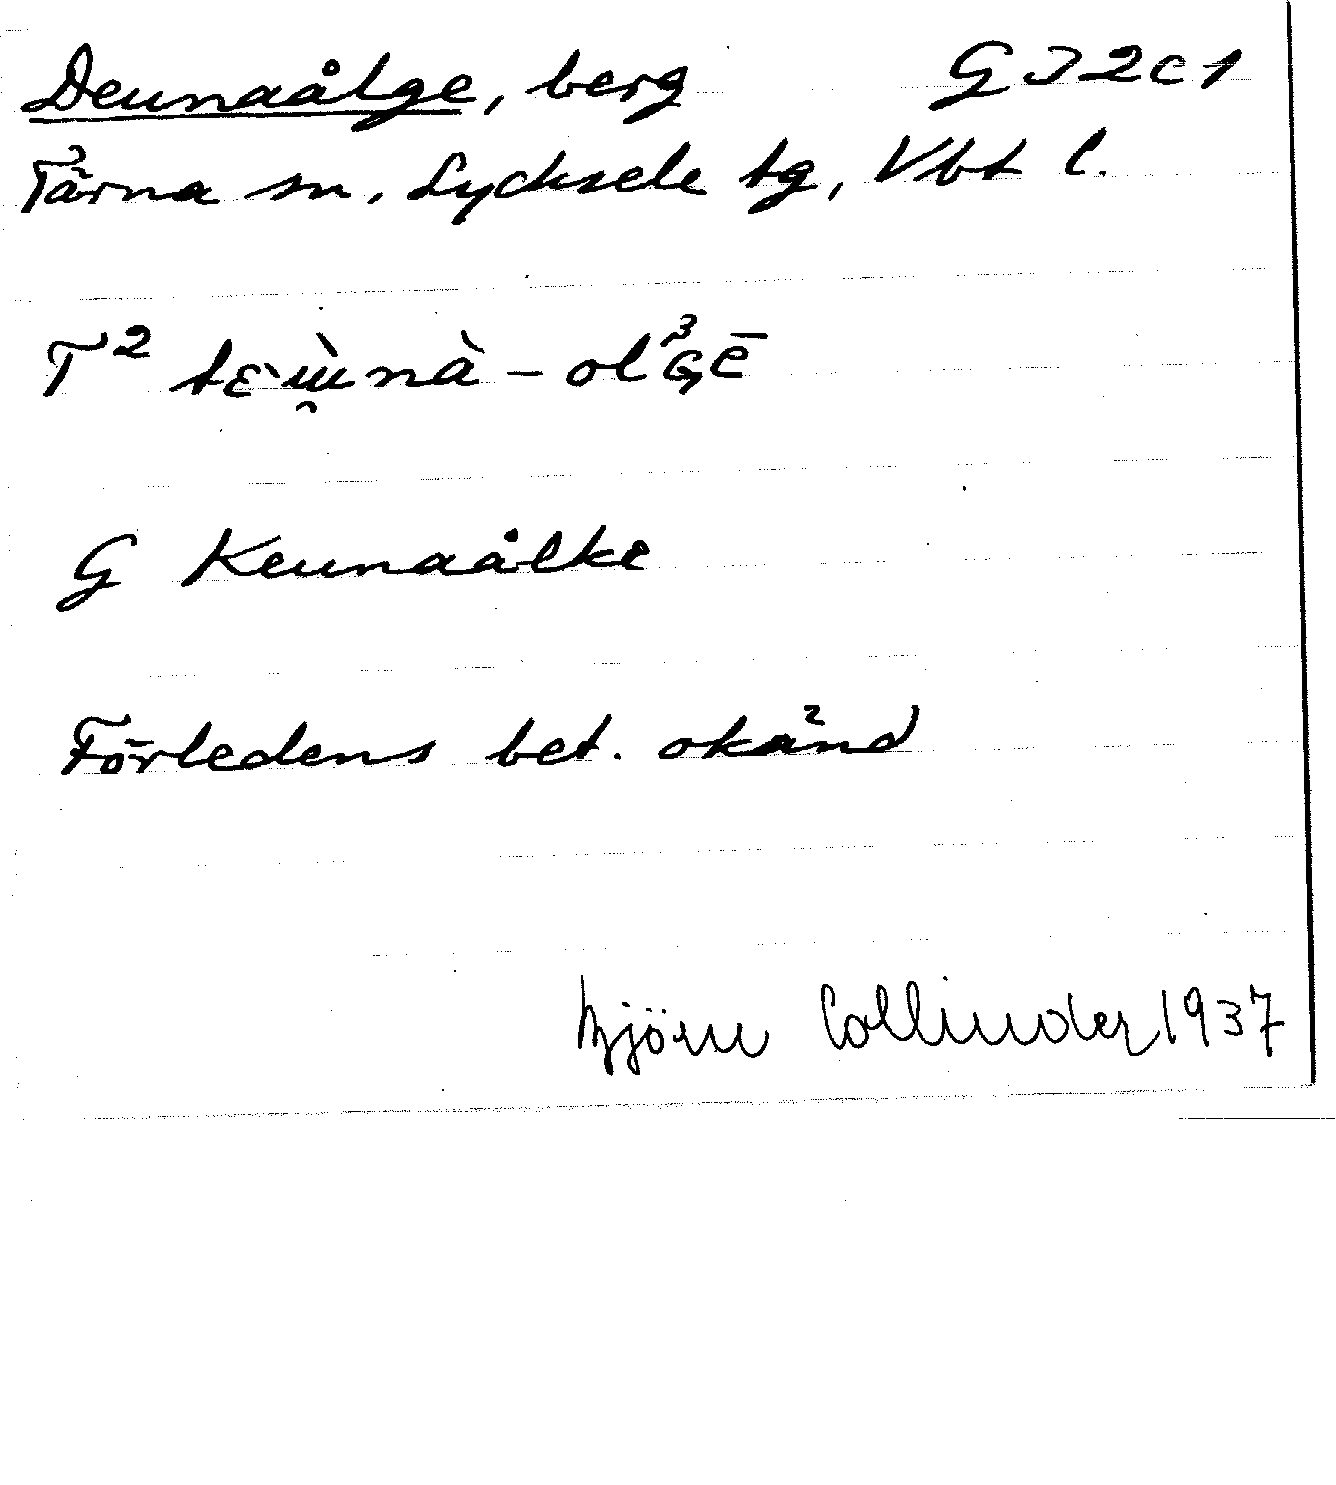 Deunaålge, berg G I 2 c 1
Tärna sn, Lycksele tg, Vbt l.
T² tɛ̀ɯ̯̀nà - ol³ɢē
G Keunaålke
Förledens bet. okänd
Björn Collinder 1937